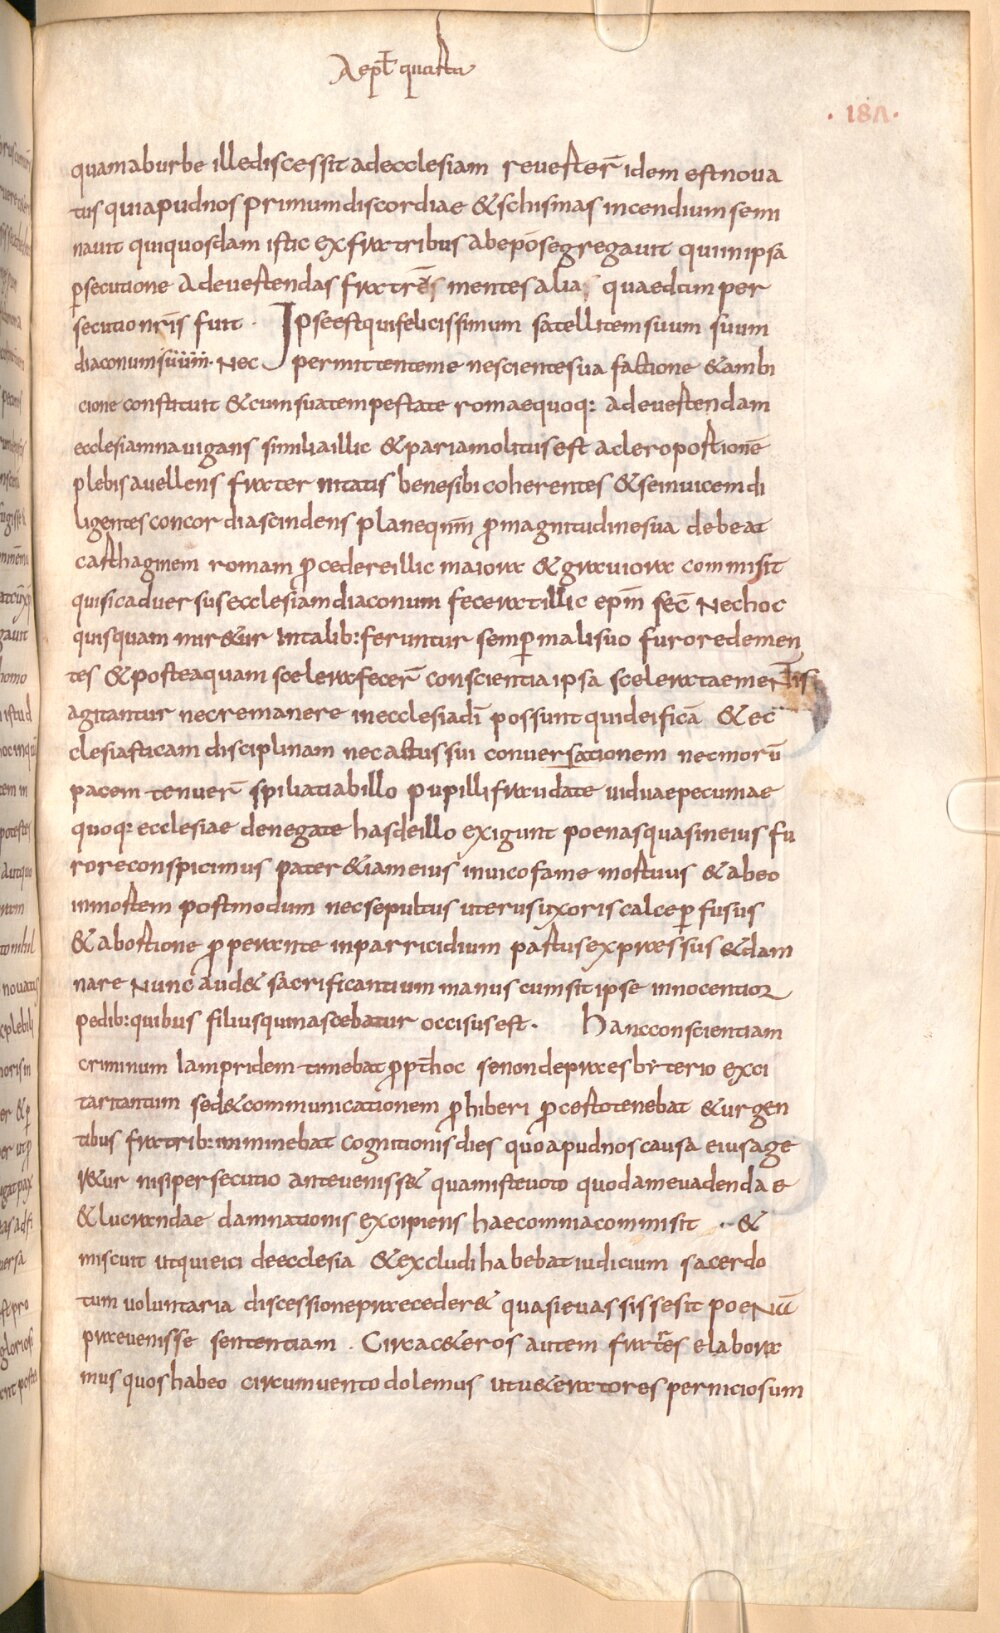 A ep̄t quarta
· 187 ·
quam ab urbe ille discessit ad ecclesiam reverter̄ idem est nova
tus qui apud nos primum discordiae & schismas incendium semi
navit qui quosdam istic ex fratribus ab epō segregavit qui in ipsa
p̱secutione ad evertendas fratrēs mentes alia quaedam per
secutio nr̄is fuit · Ipse est qui felicissimum satellitem suum suum
diaconum suum · Nec permittente me nesciente sua factione & ambi
cione constituit & cum sua tempestate romae quoq: ad evertendam
ecclesiam navigans similia illic & paria molitus est a clero portionē
plebis avellens frater nitatis bene sibi coherentes & se invicem di
ligentes concordia scindens plane qnm̄ p̱ magnitudine sua debeat
carthaginem romam p̱cedere illic maiora & graviora commisit
qui sic adversus ecclesiam diaconum fecerat illic epm̄ fec̄ Nec hoc
quisquam mir&ur In talib: feruntur semp̱ mali suo furore demen
tes & posteaquam scelera fecer̄ conscientia ipsa sceleratae mentis
agitantur nec remanere in ecclesia dī possunt qui deificā & ec
clesiasticam disciplinam nec actus sui conversationem nec morū
pacem tenuer̄ spiliati ab illo pupilli fraudate viduae pecuniae
quoq: ecclesiae denegate has de illo exigunt poenas quas in eius fu
rore conspicimus pater & iam eius in vico fame mortuus & ab eo
in mortem postmodum nec sepultus uterus uxoris calce p̱fusus
& abortione p̱perante in parricidium partus expressus & dam
nare Nunc aud& sacrificantium manus cum sit ipse innocentior
pedib: quibus filius qui nascebatur occisus est · Hanc conscientiam
criminum Iam pridem timebat p̱pt̄ hoc se non de praesbyterio exci
tari tantum sed & communicationem p̱hiberi p̱certo tenebat & urgen
tibus fratrib: imminebat cognitionis dies quo apud nos causa eius age
r&ur nisi persecutio anteveniss& quam iste voto quodam evadendae
& lucrandae damnationis excipiens haec omnia commisit · &
miscuit ut qui eici de ecclesia & excludi habebat iudicium sacerdo
tum voluntaria discessione praeceder& quasi evassisse sit poeNā
praevenisse sententiam · Circa c&eros autem frat̄res elabora
mus quos habeo circumvento dolemus ut u&eratores perniciosum